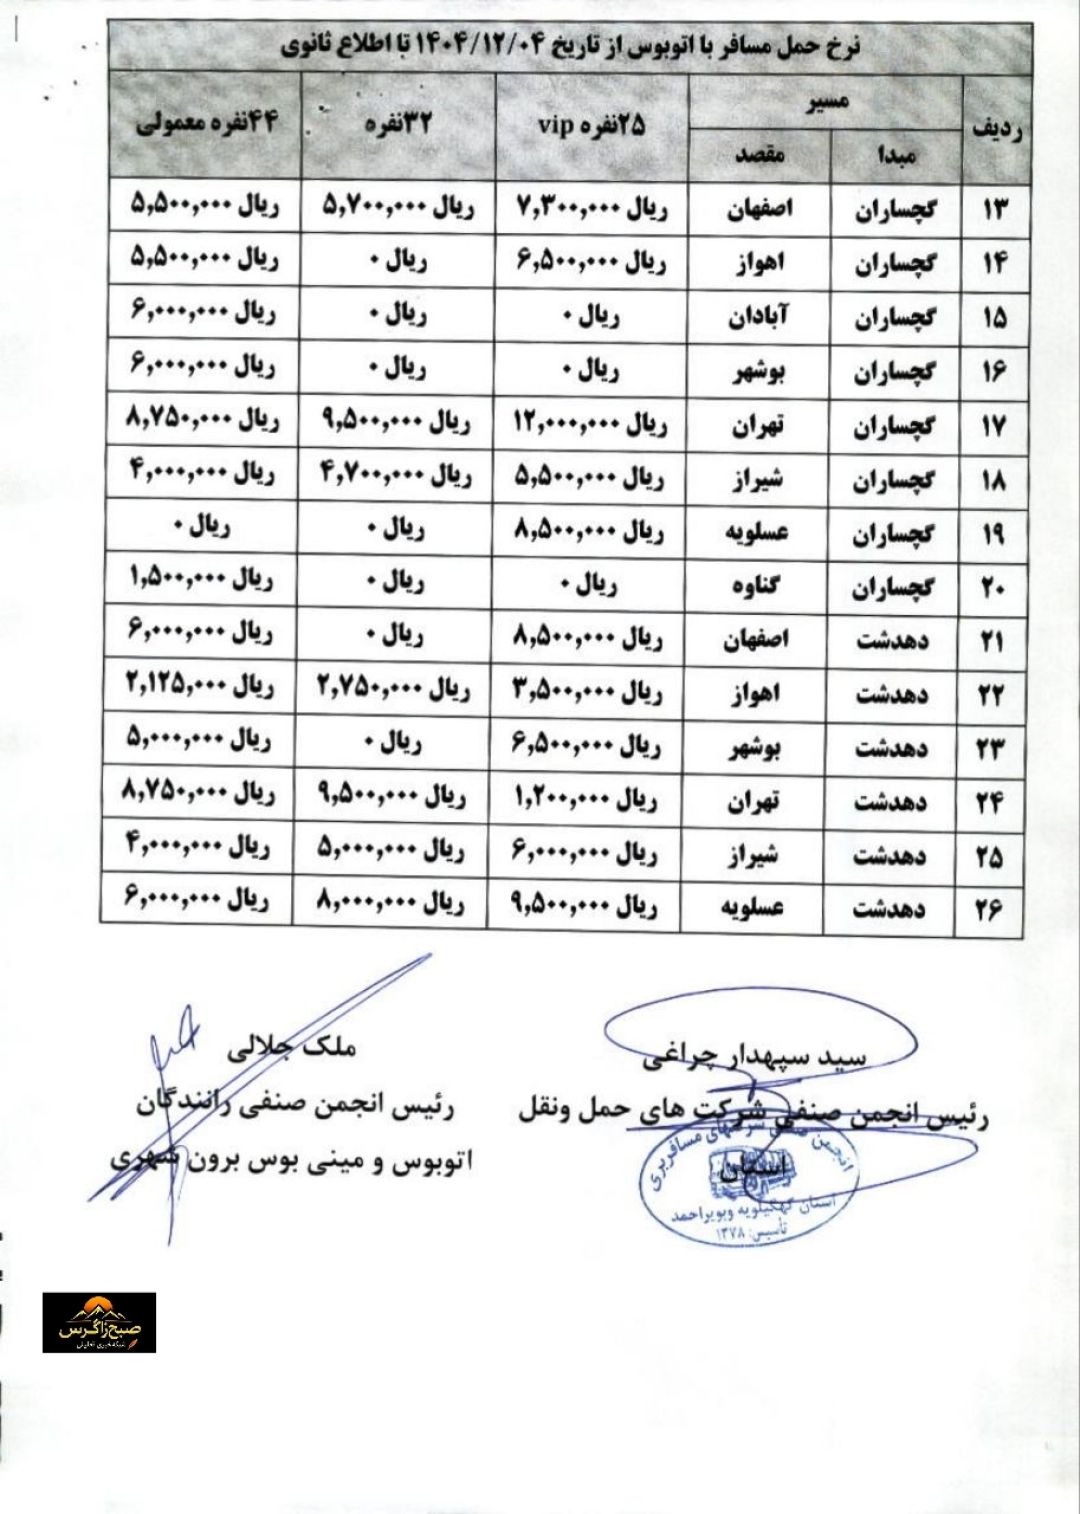 نرخ حمل مسافر با اتوبوس از تاریخ ۱۴۰۴/۱۲/۰۴ تا اطلاع ثانوی
ردیف مسیر ۲۵نفره vip ۳۲نفره ۴۴نفره معمولی
مبدا مقصد
۱۳ گچساران اصفهان ریال ۷,۳۰۰,۰۰۰ ریال ۵,۷۰۰,۰۰۰ ریال ۵,۵۰۰,۰۰۰
۱۴ گچساران اهواز ریال ۶,۵۰۰,۰۰۰ ریال ۰ ریال ۵,۵۰۰,۰۰۰
۱۵ گچساران آبادان ریال ۰ ریال ۰ ریال ۶,۰۰۰,۰۰۰
۱۶ گچساران بوشهر ریال ۰ ریال ۰ ریال ۶,۰۰۰,۰۰۰
۱۷ گچساران تهران ریال ۱۲,۰۰۰,۰۰۰ ریال ۹,۵۰۰,۰۰۰ ریال ۸,۷۵۰,۰۰۰
۱۸ گچساران شیراز ریال ۵,۵۰۰,۰۰۰ ریال ۴,۷۰۰,۰۰۰ ریال ۴,۰۰۰,۰۰۰
۱۹ گچساران عسلویه ریال ۸,۵۰۰,۰۰۰ ریال ۰ ریال ۰
۲۰ گچساران گناوه ریال ۰ ریال ۰ ریال ۱,۵۰۰,۰۰۰
۲۱ دهدشت اصفهان ریال ۸,۵۰۰,۰۰۰ ریال ۰ ریال ۶,۰۰۰,۰۰۰
۲۲ دهدشت اهواز ریال ۳,۵۰۰,۰۰۰ ریال ۲,۷۵۰,۰۰۰ ریال ۲,۱۲۵,۰۰۰
۲۳ دهدشت بوشهر ریال ۶,۵۰۰,۰۰۰ ریال ۰ ریال ۵,۰۰۰,۰۰۰
۲۴ دهدشت تهران ریال ۱,۲۰۰,۰۰۰ ریال ۹,۵۰۰,۰۰۰ ریال ۸,۷۵۰,۰۰۰
۲۵ دهدشت شیراز ریال ۶,۰۰۰,۰۰۰ ریال ۵,۰۰۰,۰۰۰ ریال ۴,۰۰۰,۰۰۰
۲۶ دهدشت عسلویه ریال ۹,۵۰۰,۰۰۰ ریال ۸,۰۰۰,۰۰۰ ریال ۶,۰۰۰,۰۰۰
سید سپهدار چراغی
رئیس انجمن صنفی شرکت های حمل ونقل
استان
انجمن صنفی شرکتهای مسافربری
استان کهگیلویه وبویراحمد
تأسیس: ۱۳۷۸
ملک جلالی
رئیس انجمن صنفی رانندگان
اتوبوس و مینی بوس برون شهری
صبح زاگرس
شبکه خبری تحلیلی